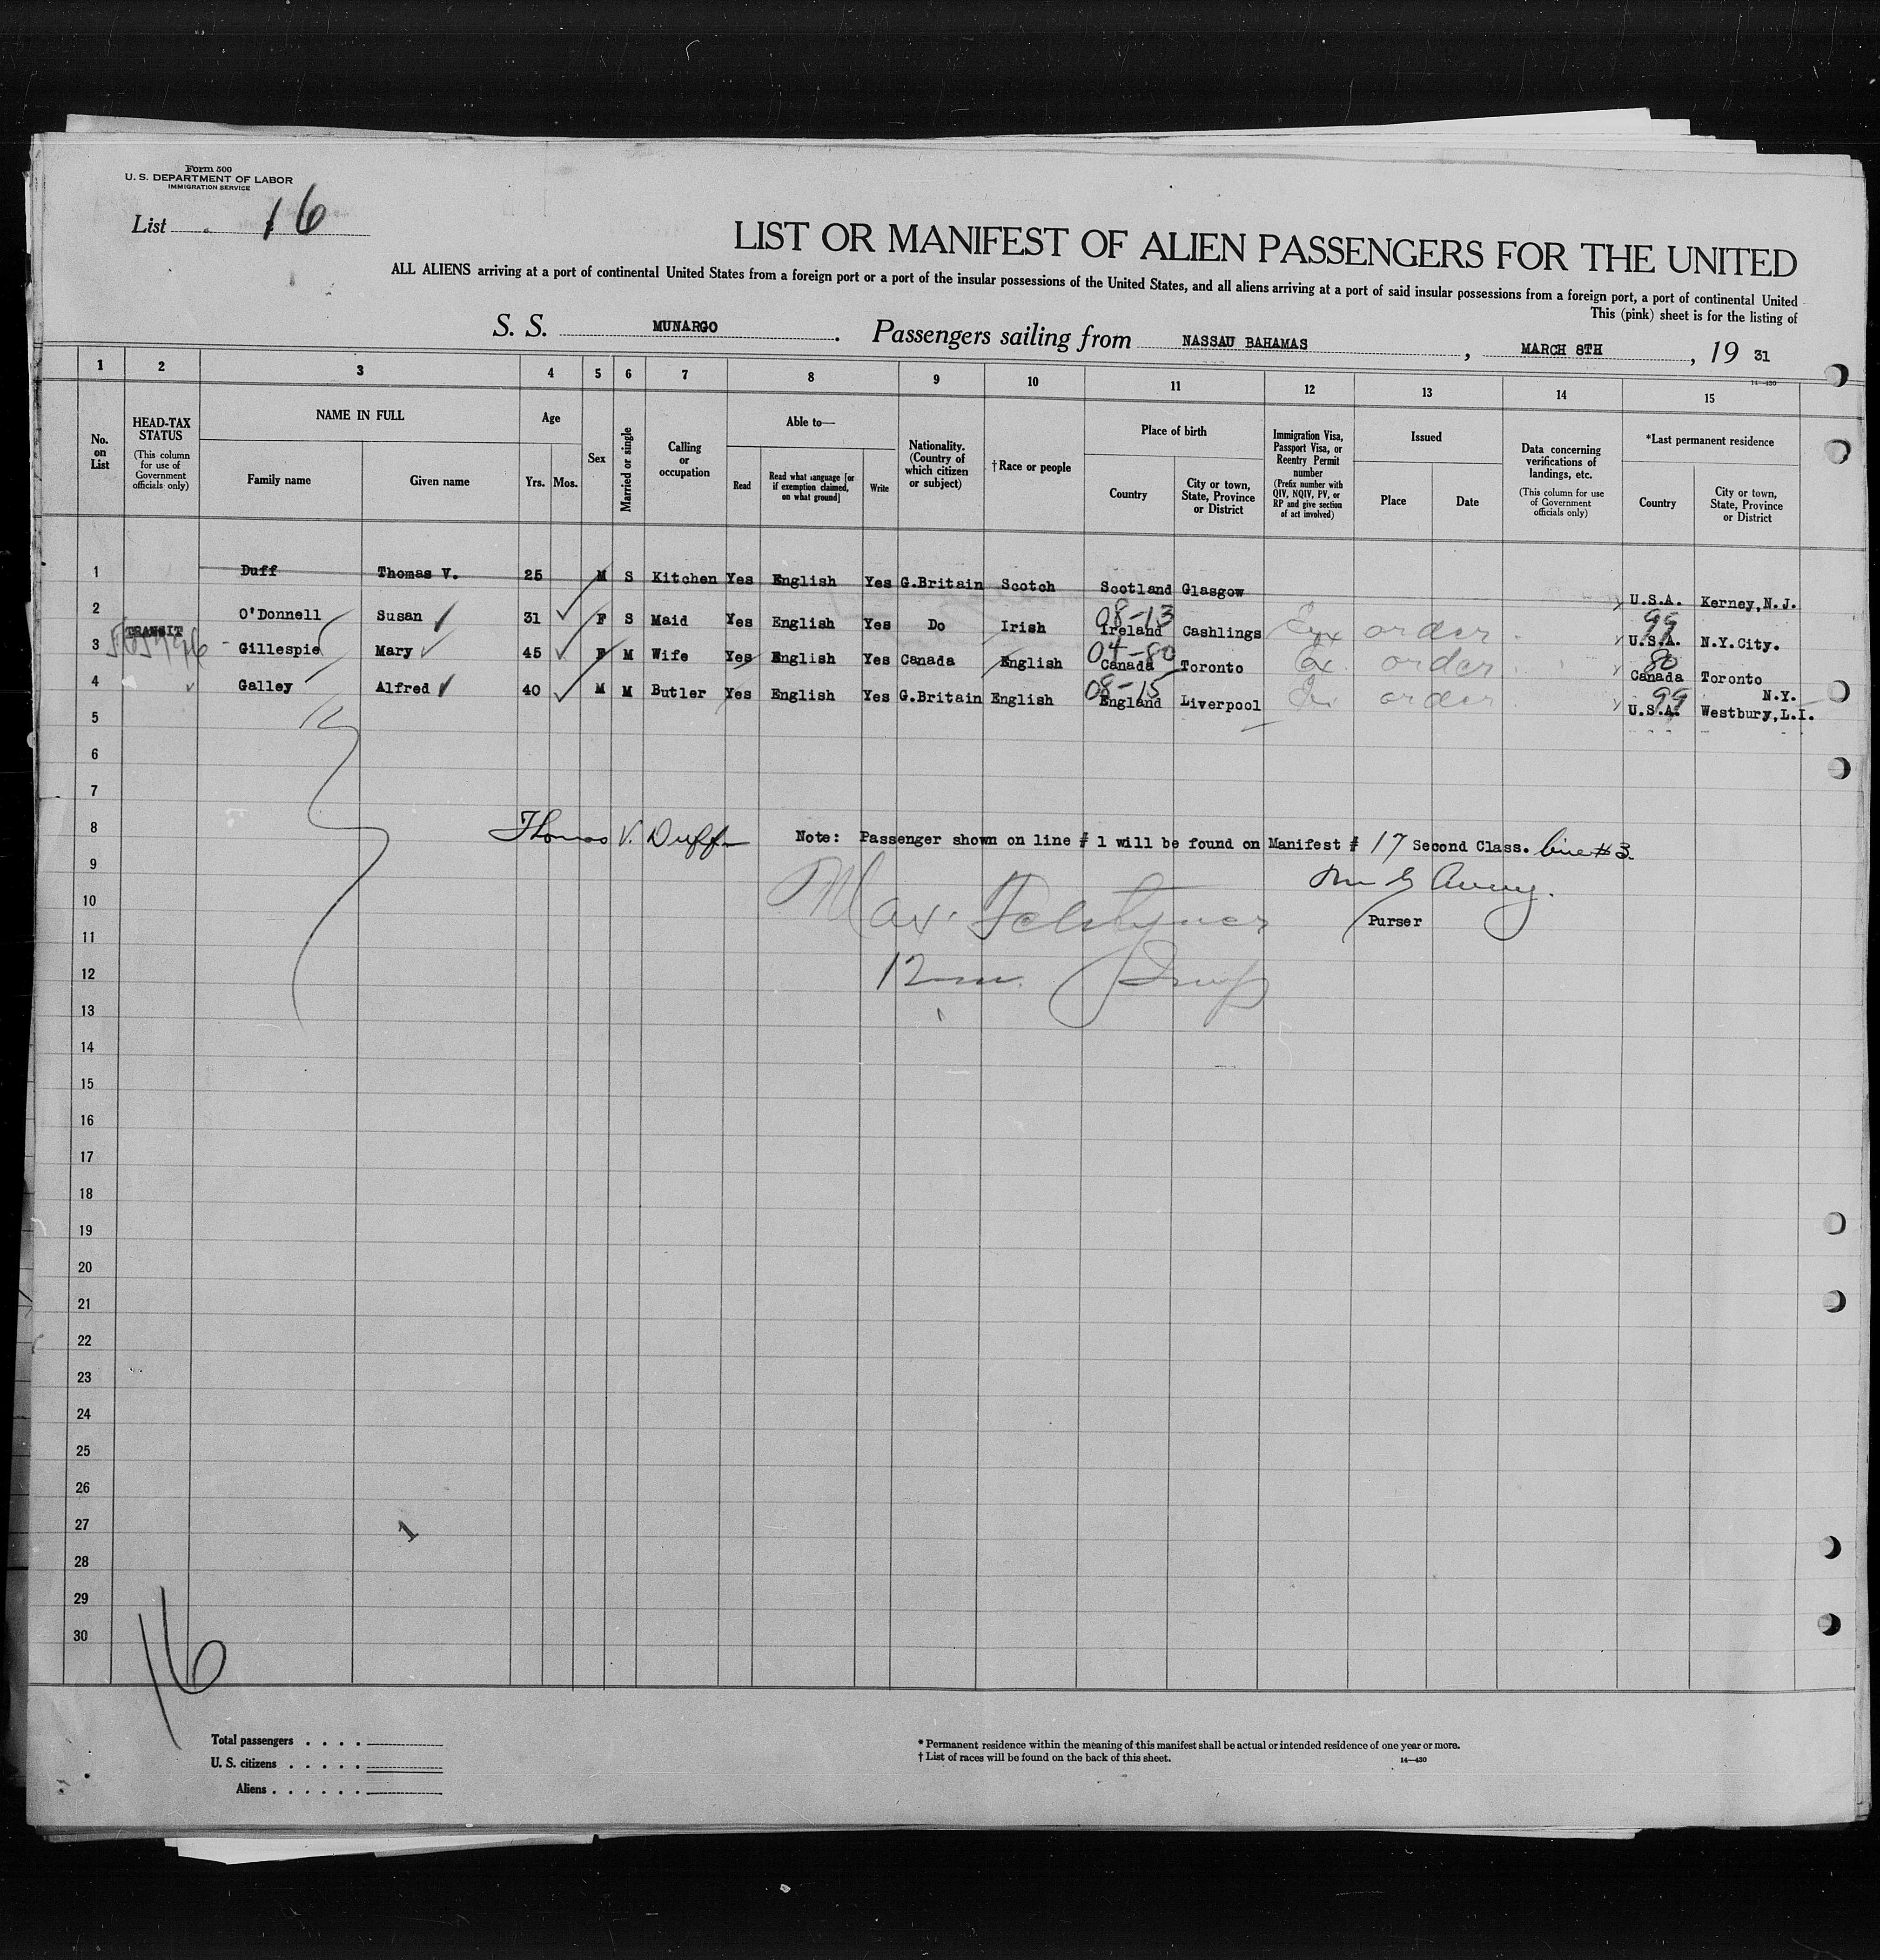 Form 500
U. S. DEPARTMENT OF LABOR
IMMIGRATION SERVICE
List 16
LIST OR MANIFEST OF ALIEN PASSENGERS FOR THE UNITED
ALL ALIENS arriving at a port of continental United States from a foreign port or a port of the insular possessions of the United States, and all aliens arriving at a port of said insular possessions from a foreign port, a port of continental United
This (pink) sheet is for the listing of
S. S. MUNARGO. Passengers sailing from NASSAU BAHAMAS, MARCH 8TH, 19 31
14—430
1 2 3 4 5 6 7 8 9 10 11 12 13 14 15
No. on List
HEAD-TAX STATUS (This column for use of Government officials only)
NAME IN FULL
Family name Given name
Age
Yrs. Mos.
Sex
Married or single
Calling or occupation
Able to—
Read
Read what language [or if exemption claimed, on what ground]
Write
Nationality. (Country of which citizen or subject)
†Race or people
Place of birth
Country
City or town, State, Province or District
Immigration Visa, Passport Visa, or Reentry Permit number (Prefix number with QIV, NQIV, PV, or RP and give section of act involved)
Issued
Place Date
Data concerning verifications of landings, etc. (This column for use of Government officials only)
*Last permanent residence
Country
City or town, State, Province or District
1 Duff Thomas V. 25 M S Kitchen Yes English Yes G.Britain Scotch Scotland Glasgow U.S.A. Kerney,N.J.
08-13 99
2 O'Donnell Susan 31 F S Maid Yes English Yes Do Irish Ireland Cashlings order U.S.A. N.Y.City.
TRANSIT 04-80 80
3 Gillespie Mary 45 F M Wife Yes English Yes Canada English Canada Toronto order Canada Toronto
08-15 99 N.Y.
4 Galley Alfred 40 M M Butler Yes English Yes G.Britain English England Liverpool order U.S.A. Westbury,L.I.
5
6
7
8 Thomas V. Duff Note: Passenger shown on line # 1 will be found on Manifest # 17 Second Class. line # 3.
9
10 Max
Purser
11
12
13
14
15
16
17
18
19
20
21
22
23
24
25
26
27
1
28
29
30
16
Total passengers . . . .
U. S. citizens . . . . .
Aliens . . . . . .
* Permanent residence within the meaning of this manifest shall be actual or intended residence of one year or more.
† List of races will be found on the back of this sheet.
14—430